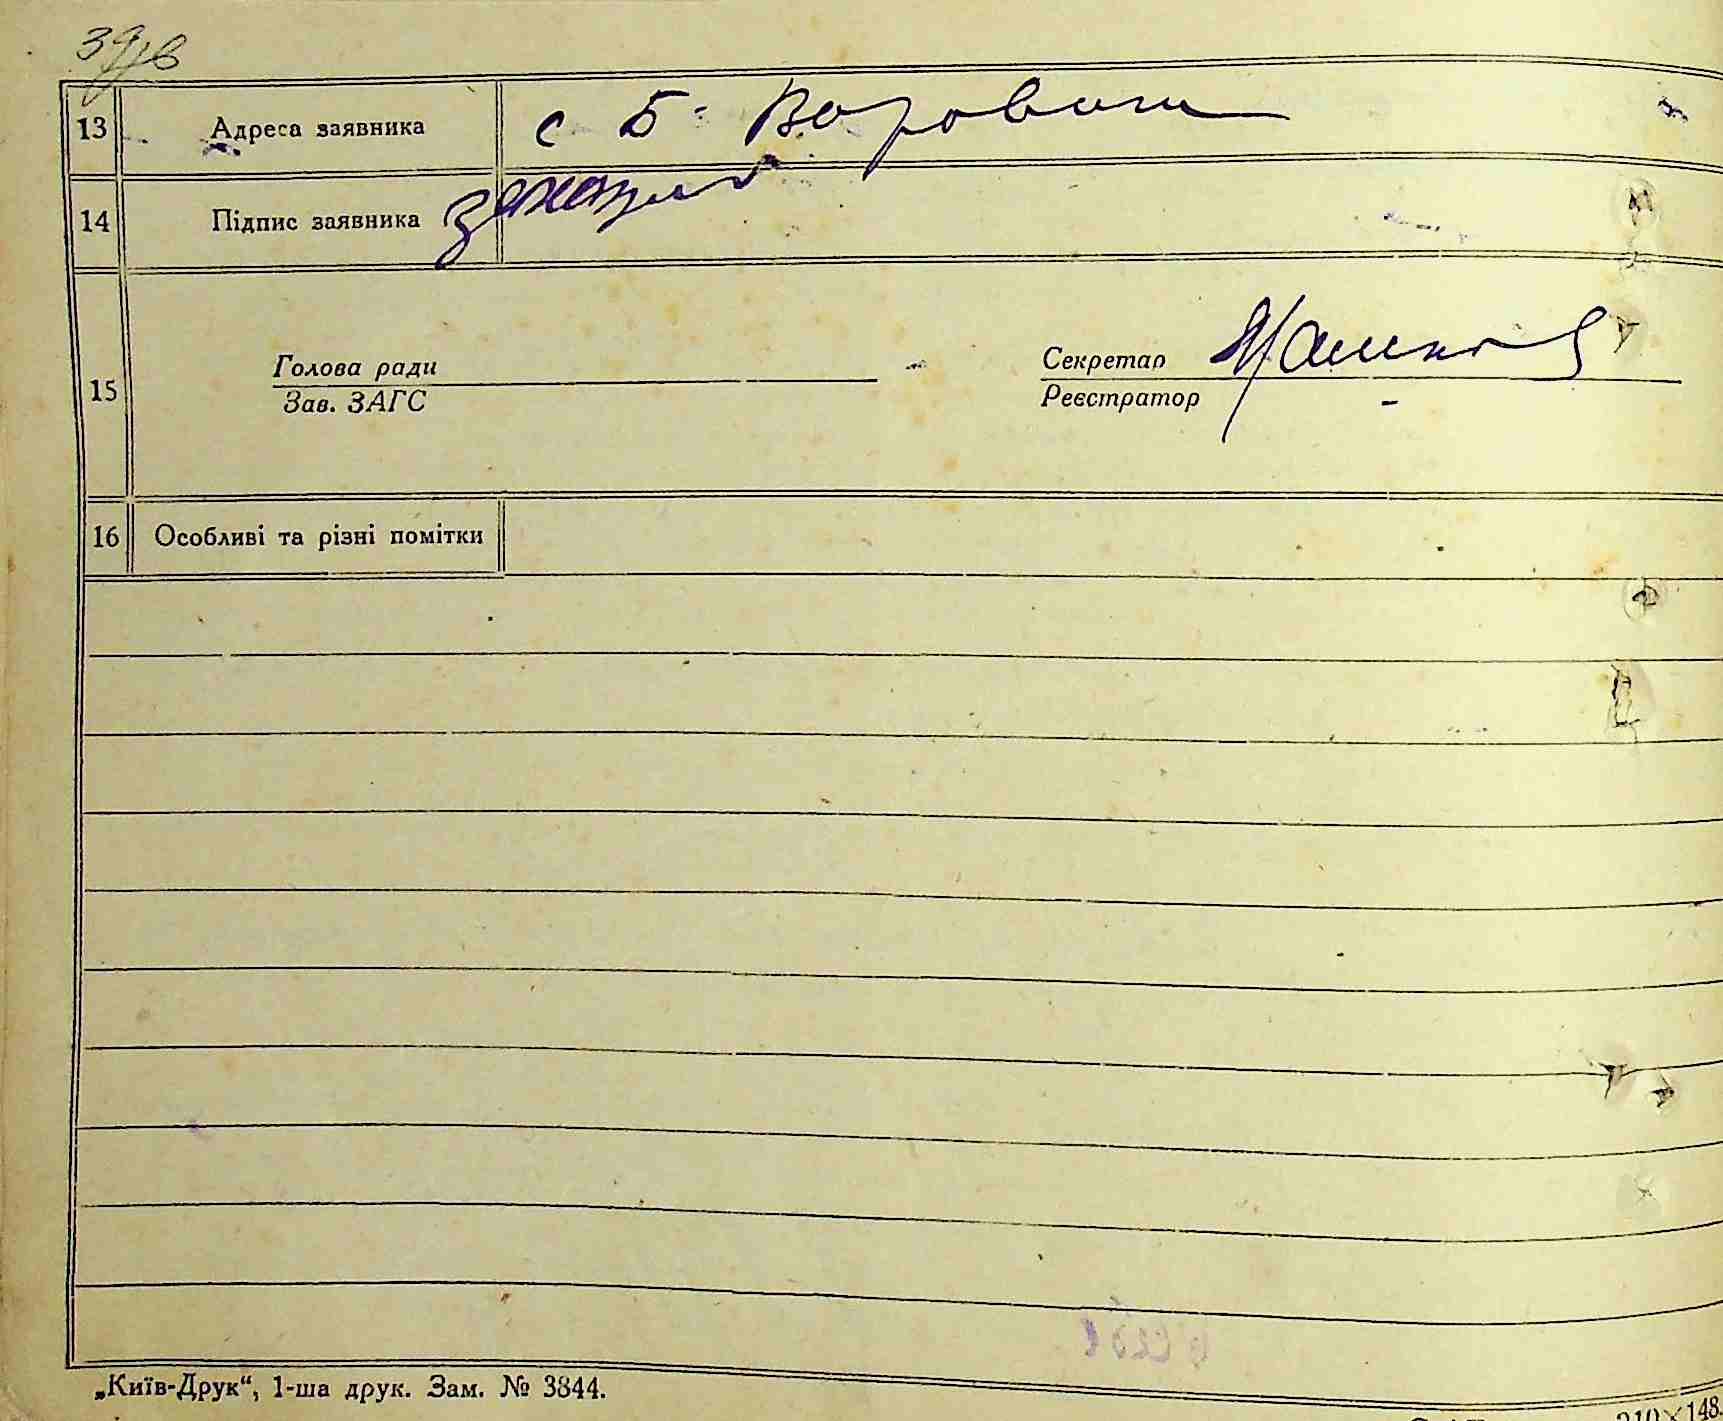 39зв
13 Адреса заявника с Б-Воровичі
14 Підпис заявника
15 Голова ради Секретар
Зав. ЗАГС Реєстратор -
16 Особливі та різні помітки
„Київ-Друк“, 1-ша друк. Зам. № 3844.
210×148.